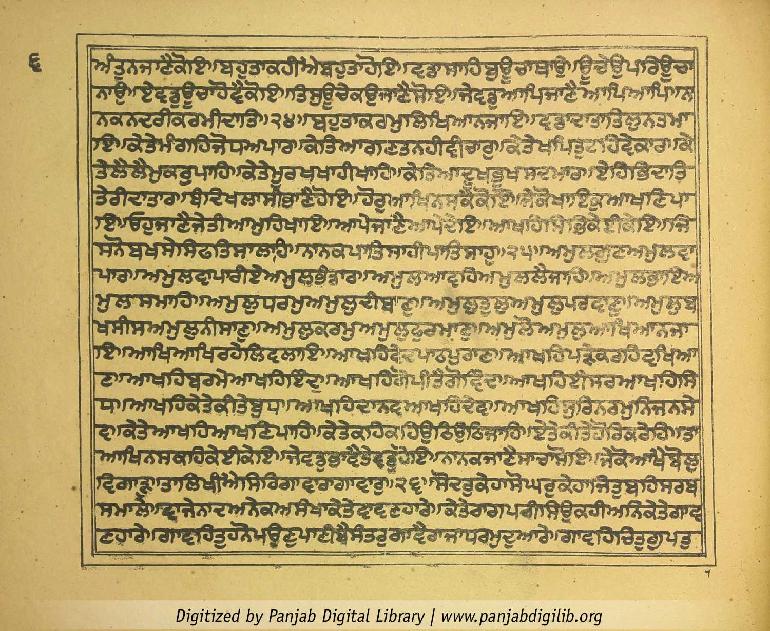 ੬
ਅੰਤੁਨਜਾਣੈਕੋਇ॥ਬਹੁਤਾਕਹੀਐਬਹੁਤਾਹੋਇ॥ਵਡਾਸਾਹਿਬੁਊਚਾਥਾਉ॥ਊਚੇਉਪਰਿਊਚਾ
ਨਾਉ॥ਏਵਡੁਊਚਾਹੋਵੈਕੋਇ॥ਤਿਸੁਊਚੇਕਉਜਾਣੈਸੋਇ॥ਜੇਵਡੁਆਪਿਜਾਣੈਆਪਿਆਪਿ॥ਨਾ
ਨਕਨਦਰੀਕਰਮੀਦਾਤਿ॥੨੪॥ਬਹੁਤਾਕਰਮੁਲਿਖਿਆਨਜਾਇ॥ਵਡਾਦਾਤਾਤਿਲੁਨਤਮਾ
ਇ॥ਕੇਤੇਮੰਗਹਿਜੋਧਅਪਾਰ॥ਕੇਤਿਆਗਣਤਨਹੀਵੀਚਾਰੁ॥ਕੇਤੇਖਪਿਤੁਟਹਿਵੇਕਾਰ॥ਕੇ
ਤੇਲੈਲੈਮੁਕਰੁਪਾਹਿ॥ਕੇਤੇਮੂਰਖਖਾਹੀਖਾਹਿ॥ਕੇਤਿਆਦੂਖਭੂਖਸਦਮਾਰ॥ਏਹਿਭਿਦਾਤਿ
ਤੇਰੀਦਾਤਾਰ॥ਬੰਦਿਖਲਾਸੀਭਾਣੈਹੋਇ॥ਹੋਰੁਆਖਿਨਸਕੈਕੋਇ॥ਜੇਕੋਖਾਇਕੁਆਖਣਿਪਾ
ਇ॥ਓਹੁਜਾਣੈਜੇਤੀਆਮੁਹਿਖਾਇ॥ਆਪੇਜਾਣੈਆਪੇਦੇਇ॥ਆਖਹਿਸਿਭਿਕੇਈਕੇਇ॥ਜਿ
ਸਨੋਬਖਸੇਸਿਫਤਿਸਾਲਾਹ॥ਨਾਨਕਪਾਤਿਸਾਹੀਪਾਤਿਸਾਹੁ॥੨੫॥ਅਮੁਲਗੁਣਅਮੁਲਵਾ
ਪਾਰ॥ਅਮੁਲਵਾਪਾਰੀਏਅਮੁਲਭੰਡਾਰ॥ਅਮੁਲਆਵਹਿਅਮੁਲਲੈਜਾਹਿ॥ਅਮੁਲਭਾਇਅ
ਮੁਲਾਸਮਾਹਿ॥ਅਮੁਲੁਧਰਮੁਅਮੁਲੁਦੀਬਾਣੁ॥ਅਮੁਲੁਤੁਲੁਅਮੁਲੁਪਰਵਾਣੁ॥ਅਮੁਲੁਬ
ਖਸੀਸਅਮੁਲੁਨੀਸਾਣੁ॥ਅਮੁਲੁਕਰਮੁਅਮੁਲੁਫੁਰਮਾਣੁ॥ਅਮੁਲੋਅਮੁਲੁਆਖਿਆਨਜਾ
ਇ॥ਆਖਿਆਖਿਰਹੇਲਿਵਲਾਇ॥ਆਖਹਿਵੇਦਪਾਠਪੁਰਾਣ॥ਆਖਹਿਪੜੇਕਰਹਿਵਖਿਆ
ਣ॥ਆਖਹਿਬਰਮੇਆਖਹਿਇੰਦ॥ਆਖਹਿਗੋਪੀਤੈਗੋਵਿੰਦ॥ਆਖਹਿਈਸਰਆਖਹਿਸਿ
ਧ॥ਆਖਹਿਕੇਤੇਕੀਤੇਬੁਧ॥ਆਖਹਿਦਾਨਵਆਖਹਿਦੇਵ॥ਆਖਹਿਸੁਰਿਨਰਮੁਨਿਜਨਸੇ
ਵ॥ਕੇਤੇਆਖਹਿਆਖਣਿਪਾਹਿ॥ਕੇਤੇਕਹਿਕਹਿਉਠਿਉਠਿਜਾਹਿ॥ਏਤੇਕੀਤੇਹੋਰਿਕਰੇਹਿ॥ਤਾ
ਆਖਿਨਸਕਹਿਕੇਈਕੇਇ॥ਜੇਵਡੁਭਾਵੈਤੇਵਡੁਹੋਇ॥ਨਾਨਕਜਾਣੈਸਾਚਾਸੋਇ॥ਜੇਕੋਆਖੈਬੋਲੁ
ਵਿਗਾੜੁ॥ਤਾਲਿਖੀਐਸਿਰਿਗਾਵਾਰਾਗਾਵਾਰੁ॥੨੬॥ਸੋਦਰੁਕੇਹਾਸੋਘਰੁਕੇਹਾਜਿਤੁਬਹਿਸਰਬ
ਸਮਾਲੇ॥ਵਾਜੇਨਾਦਅਨੇਕਅਸੰਖਾਕੇਤੇਵਾਵਣਹਾਰੇ॥ਕੇਤੇਰਾਗਪਰੀਸਿਉਕਹੀਅਨਿਕੇਤੇਗਾਵ
ਣਹਾਰੇ॥ਗਾਵਹਿਤੁਹਨੋਪਉਣੁਪਾਣੀਬੈਸੰਤਰੁਗਾਵੈਰਾਜਾਧਰਮੁਦੁਆਰੇ॥ਗਾਵਹਿਚਿਤੁਗੁਪਤੁ
Digitized by Panjab Digital Library | www.panjabdigilib.org